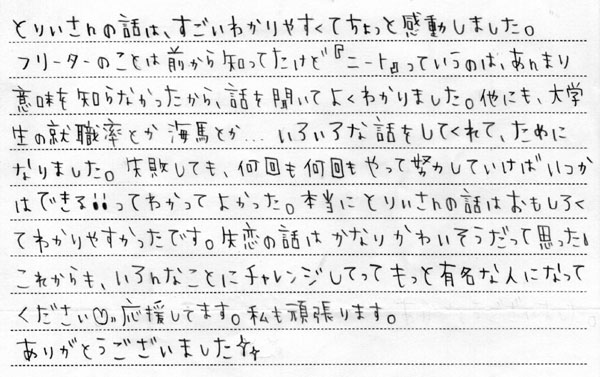 とりいさんの話は、すごいわかりやすくてちょっと感動しました。
フリーターのことは前から知ってたけど『ニート』っていうのは、あんまり
意味を知らなかったから、話を聞いてよくわかりました。他にも、大学
生の就職率とか海馬とか…いろいろな話をしてくれて、ために
なりました。失敗しても、何回も何回もやって努力していけばいつか
はできる!!ってわかってよかった。本当にとりいさんの話はおもしろく
てわかりやすかったです。失恋の話はかなりかわいそうだって思った!
これからも、いろんなことにチャレンジしてってもっと有名な人になって
ください♡。応援してます。私も頑張ります。
ありがとうございました☆☆